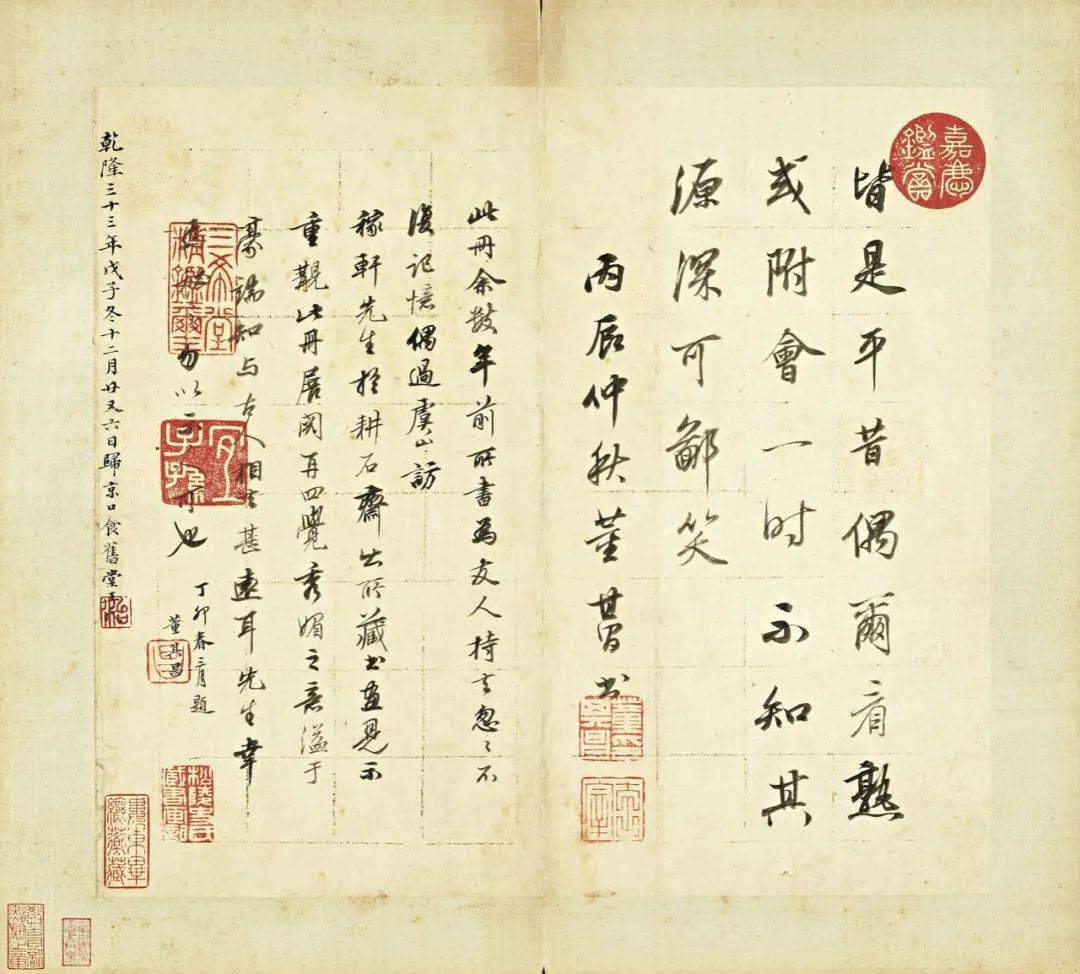 嘉慶鑑賞
皆是平昔偶爾看熟
或附會一时不知其
源深可鄙笑
丙辰仲秋董其昌书
此冊余数年前所書為友人持去忽〻不
復記憶偶過虞山訪
稼軒先生於耕石齋出所藏书畫見示
重觀此冊展閱再四覺秀媚之意溢于
豪端知与古人相去甚遠耳先生幸
勿以示可也
丁卯春三月題
董其昌
三希堂精鑑璽
宜子孫
乾隆三十三年戊子冬十二月廿又六日歸京口食舊堂